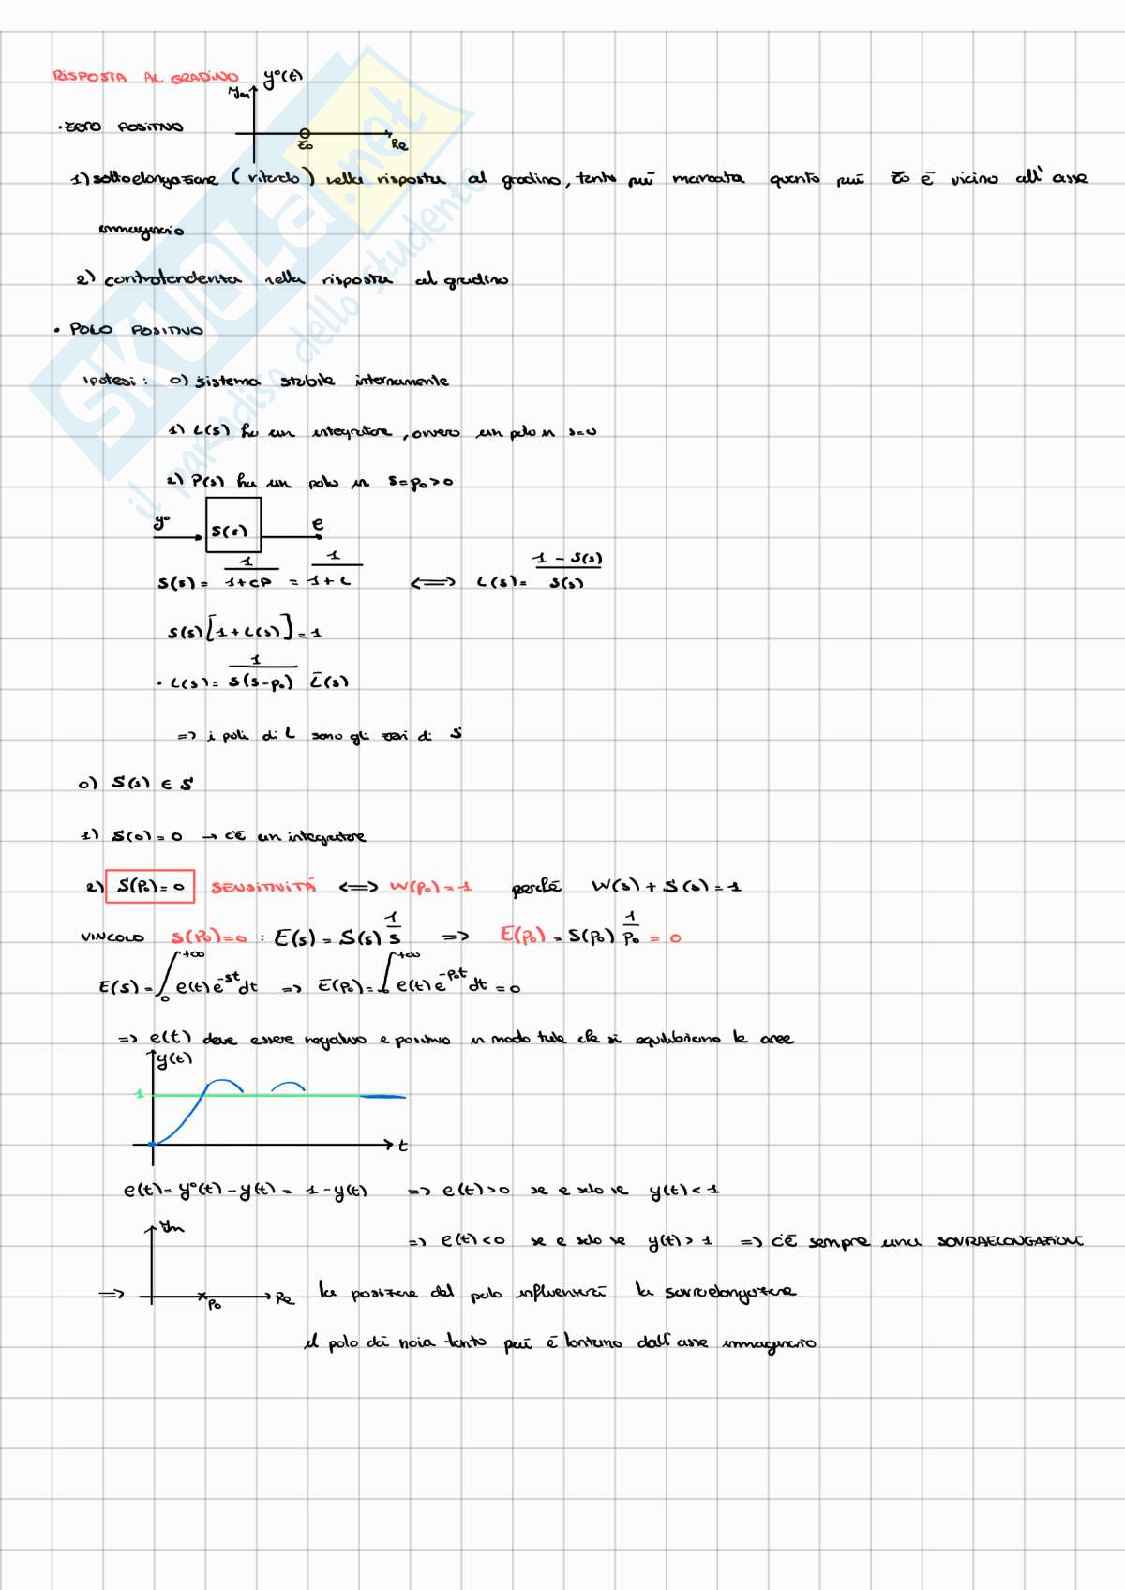 RISPOSTA AL GRADINO y°(t)
Im
· ZERO POSITIVO
z₀ Re
1) sottoelongazione (ritardo) nella risposta al gradino, tanto più marcata quanto più z₀ è vicino all'asse
immaginario
2) controtendenza nella risposta al gradino
• POLO POSITIVO
Ipotesi: 0) sistema stabile internamente
1) L(s) ha un integratore, ovvero un polo in s=0
2) P(s) ha un polo in s=p₀>0
y° S(s) e
S(s) = 1/(1+CP) = 1/(1+L) <=> L(s) = (1-S(s))/S(s)
S(s)[1+L(s)]=1
· L(s) = 1/(s(s-p₀)) L̄(s)
=> i poli di L sono gli zeri di S
0) S(s) ∈ S
1) S(0)=0 → c'è un integratore
2) S(p₀)=0 SENSITIVITÀ <=> W(p₀)=1 perché W(s)+S(s)=1
VINCOLO S(p₀)=0 : E(s) = S(s) 1/s => E(p₀) = S(p₀) 1/p₀ = 0
E(s) = ∫₀^{+∞} e(t)e^{-st}dt => E(p₀) = ∫₀^{+∞} e(t)e^{-p₀t}dt = 0
=> e(t) deve essere negativo e positivo in modo tale che si equilibrano le aree
y(t)
1
t
e(t) = y°(t) - y(t) = 1 - y(t) => e(t)>0 se e solo se y(t)<1
Im
=> e(t)<0 se e solo se y(t)>1 => c'è sempre una SOVRAELONGAZIONE
=> p₀ Re la posizione del polo influenzerà la sovraelongazione
il polo dà noia tanto più è lontano dall'asse immaginario
SKUOLa.net
il paradiso dello studente